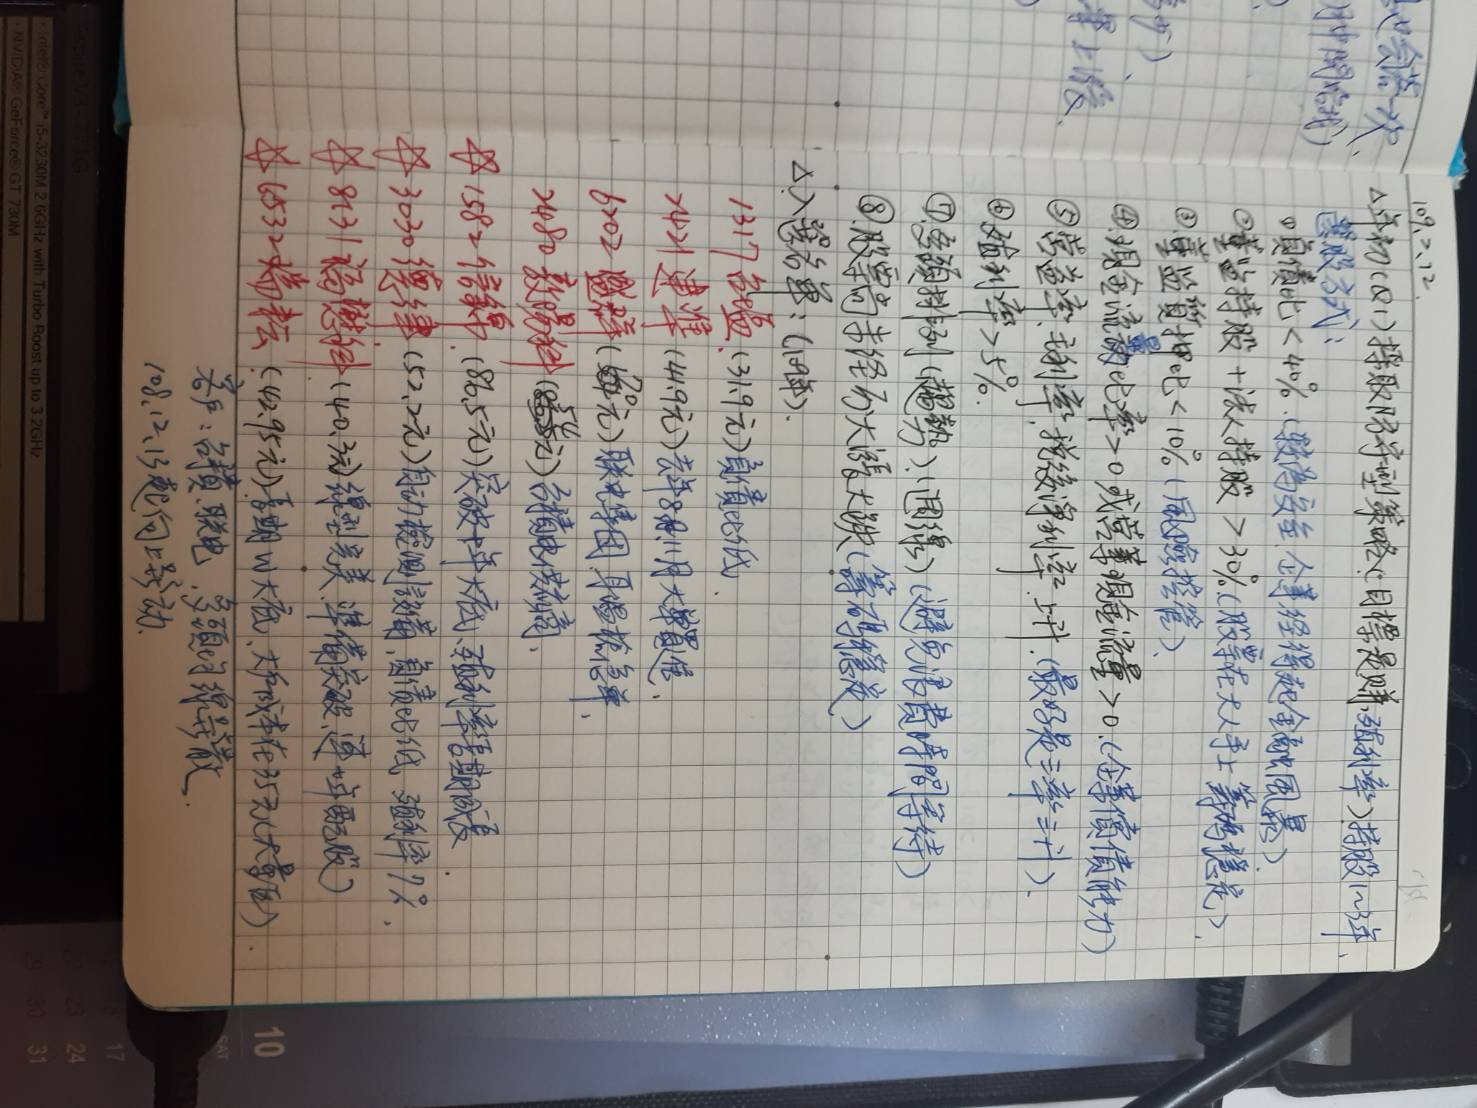 也会答一次
109.2.12.
△年初(Q1)採取防守型策略(目標是賺殖利率)持股1~3年,
選股方式:
①負債比<40%.(較為安全,企業经得起金融風暴).
②董监持股+法人持股>30%(股票在大人手上籌碼穩定),
③董监質押比<10%(風險控管).
④現金流量比率>0或营業現金流量>0.(企業償債能力)
⑤营益率,毛利率,稅後淨利率上升.(最好是三率三升).
⑥殖利率>5%.
⑦多頭排列(趨勢).(週線)(避免浪費時間等待)
⑧股票尚未经历大漲大跌(籌碼穩定)
△入選名單:(109年).
1317台塩(31.9元)負債比低.
2421建準(41.9元)去年8月.11月大單買進.
6202盛群(70元)联电集团,耳溫槍急單,
2480敦陽科(54元)台積电供应商,
☆1582信錦(86.5元)突破十年大底,殖利率長期成長.
☆3030德律(52.2元)自动檢測設備,負債比低 殖利率7%.
☆8131福懋科(40.3元)線型完美,準備突破,連年配股)
☆6532瑞耘(42.95元)長期W大底,大戶成本在35元(大量區).
客戶:台積.联电,多頭均線發散.
108.12.13起向上發动.
Intel® Core™ i5-3230M 2.6GHz with Turbo Boost up to 3.2GHz
NVIDIA® GeForce® GT 730M
10
SAT
17
24
31